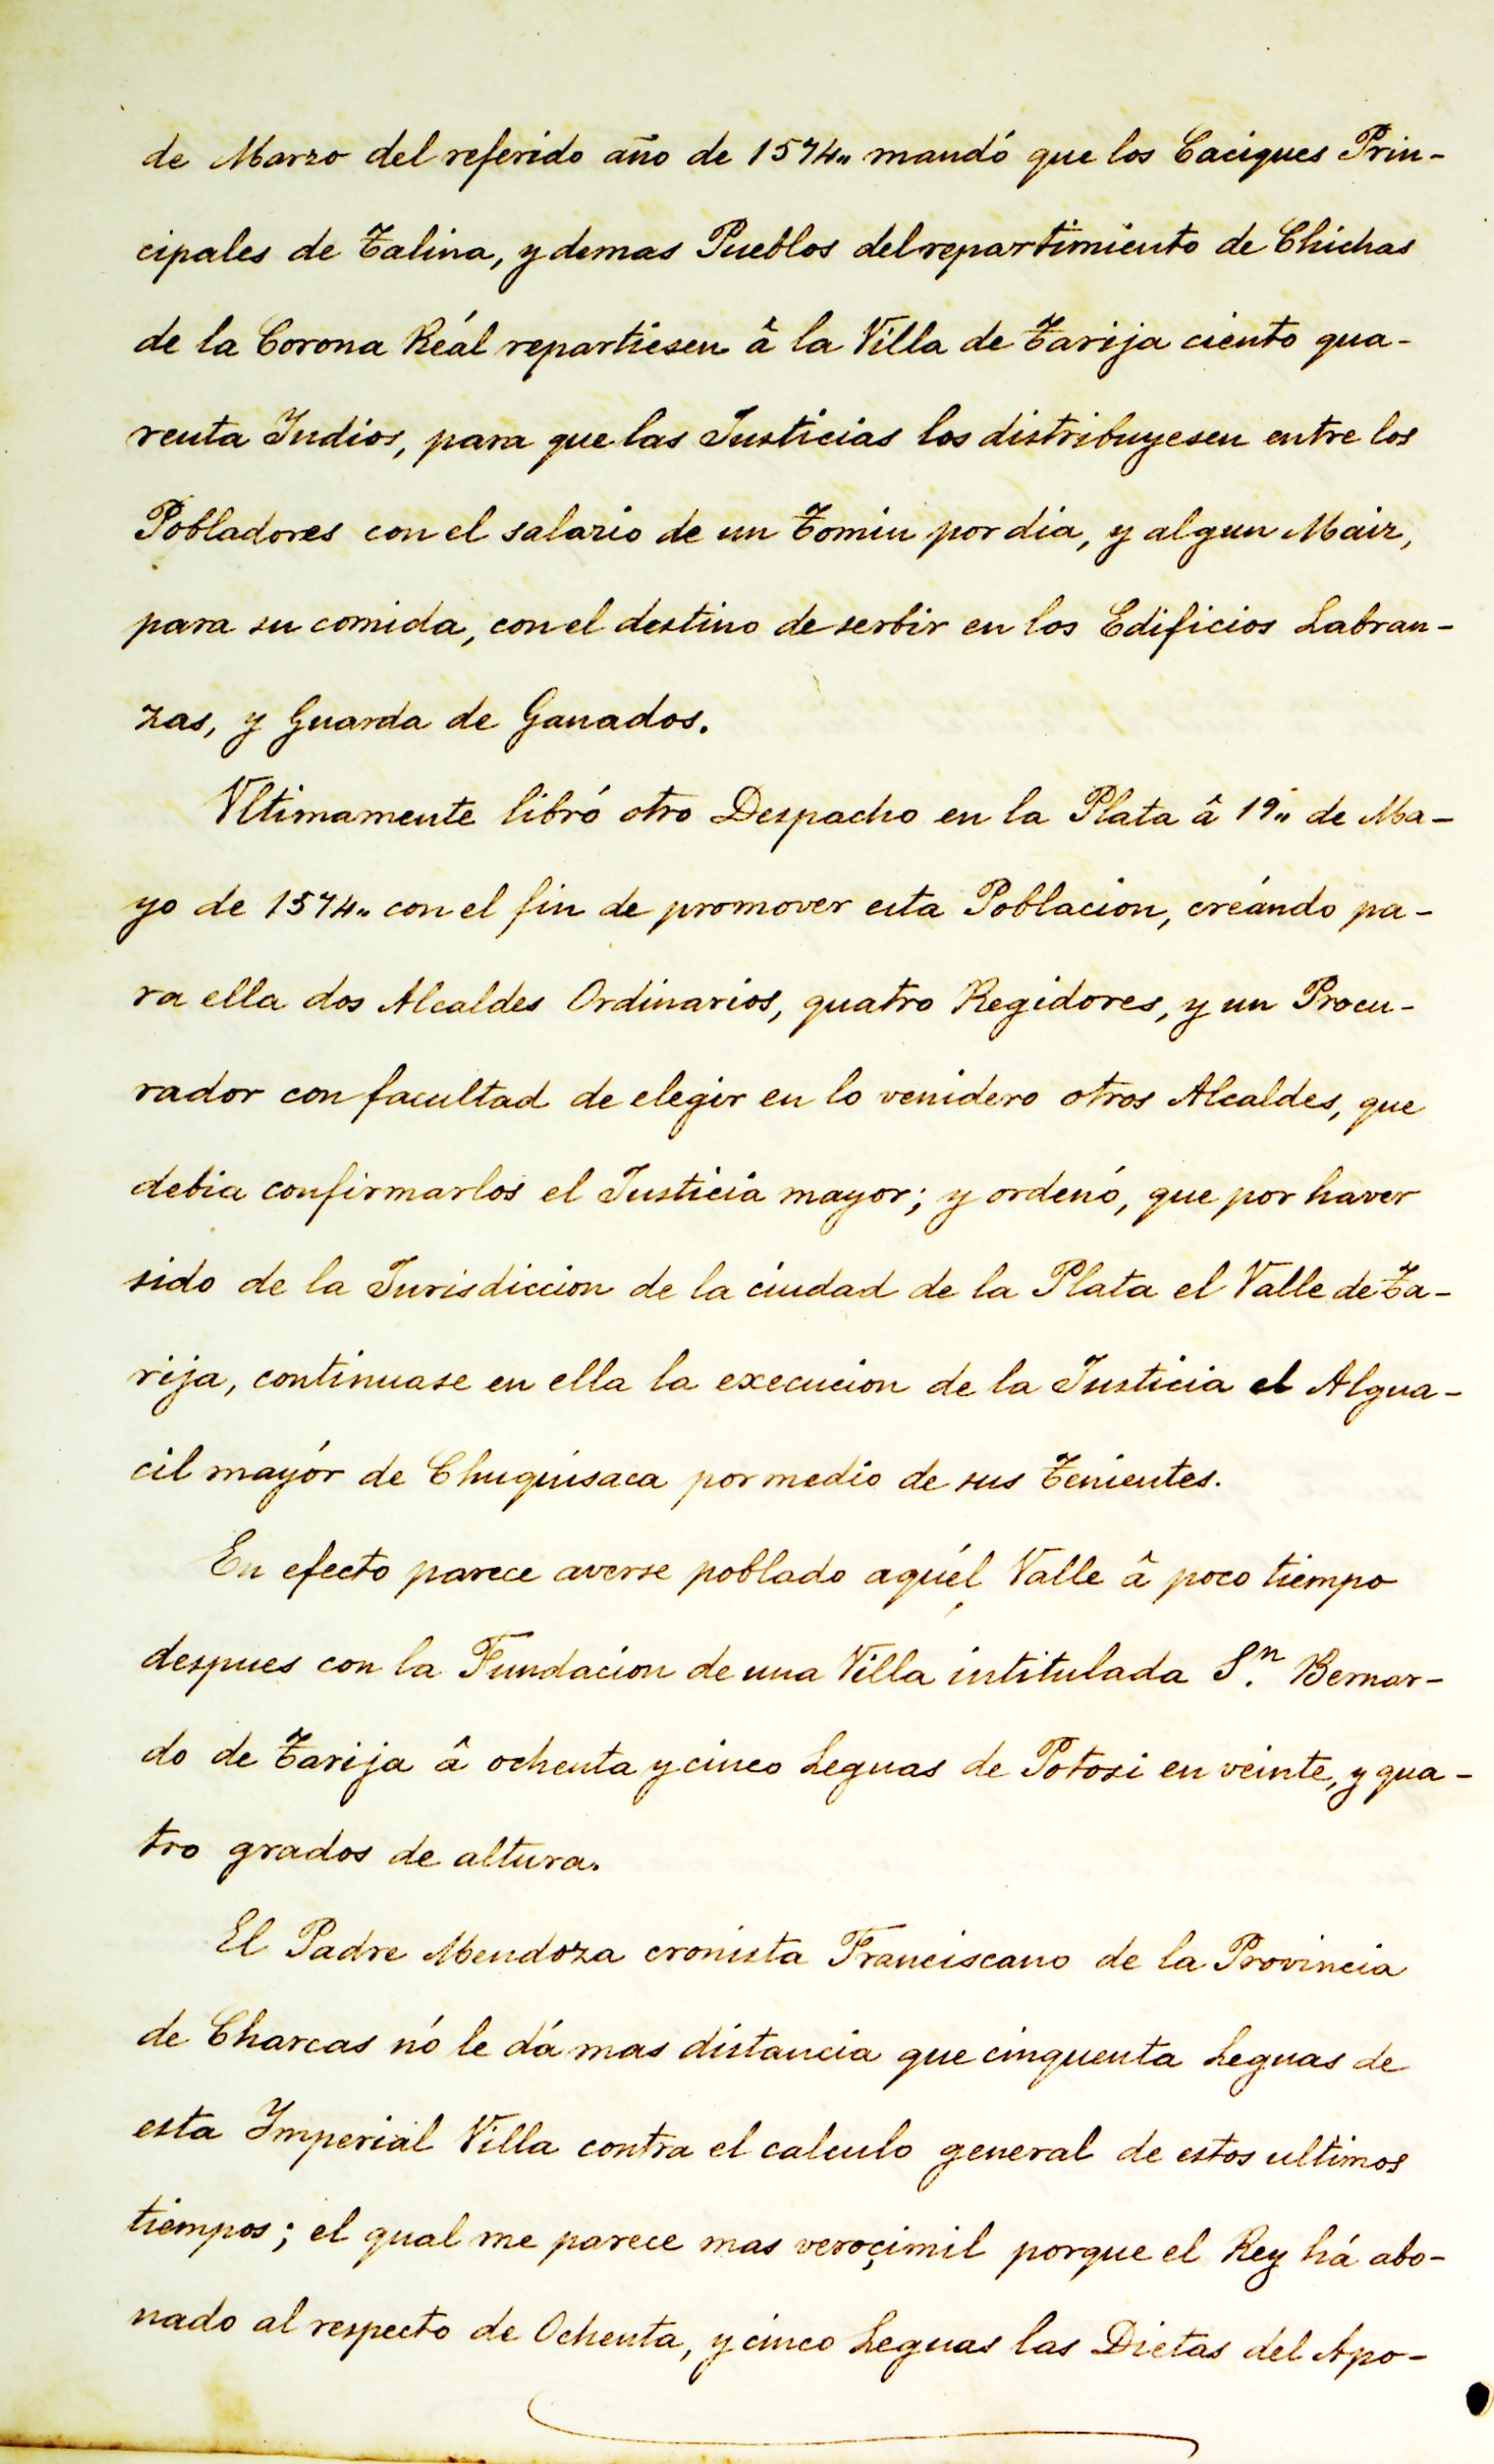 de Marzo del referido año de 1574„ mandó que los Caciques Prin-
cipales de Talina, y demas Pueblos del repartimiento de Chichas
de la Corona Reál repartiesen â la Villa de Tarija ciento qua-
renta Indios, para que las Justicias los distribuyesen entre los
Pobladores con el salario de un Tomin por dia, y algun Maiz,
para su comida, con el destino de serbir en los Edificios Labran-
zas, y Guarda de Ganados.
Vltimamente libró otro Despacho en la Plata â 19„ de Ma-
yo de 1574„ con el fin de promover esta Poblacion, creándo pa-
ra ella dos Alcaldes Ordinarios, quatro Regidores, y un Procu-
rador con facultad de elegir en lo venidero otros Alcaldes, que
debia confirmarlos el Justicia mayor; y ordenó, que por haver
sido de la Jurisdiccion de la ciudad de la Plata el Valle de Ta-
rija, continuase en ella la execucion de la Justicia el Algua-
cil mayór de Chuquisaca por medio de sus Tenientes.
En efecto parece averse poblado aquél Valle â poco tiempo
despues con la Fundacion de una Villa intitulada S.n Bernar-
do de Tarija â ochenta y cinco Leguas de Potosi en veinte, y qua-
tro grados de altura.
El Padre Mendoza cronista Franciscano de la Provincia
de Charcas nó le dá mas distancia que cinquenta Leguas de
esta Imperial Villa contra el calculo general de estos ultimos
tiempos; el qual me parece mas veroçimil porque el Rey há abo-
nado al respecto de Ochenta, y cinco Leguas las Dietas del Apo-